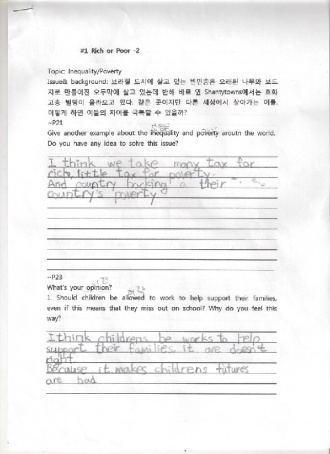 #1 Rich or Poor -2
Topic: Inequality/Poverty
Issue& background: 브라질 도시에 살고 있는 빈민들은 오래된 나무와 보드
지로 만들어진 오두막에 살고 있는데 반해 바로 옆 Shantytowns에서는 호화
고층 빌딩이 올라오고 있다. 같은 곳이지만 다른 세상에서 살아가는 이들.
어떻게 하면 이들의 차이를 극복할 수 있을까?
~P21
Give another example about the inequality and poverty around the world.
Do you have any idea to solve this issue?
I think we take many tax for
rich, little tax for poverty.
And country backing a their
country's poverty
~P23
What's your opinion?
1. Should children be allowed to work to help support their families,
even if this means that they miss out on school? Why do you feel this
way?
I think childrens be works to help
support their families it are doesn't
right
Because it makes childrens futures
are bad